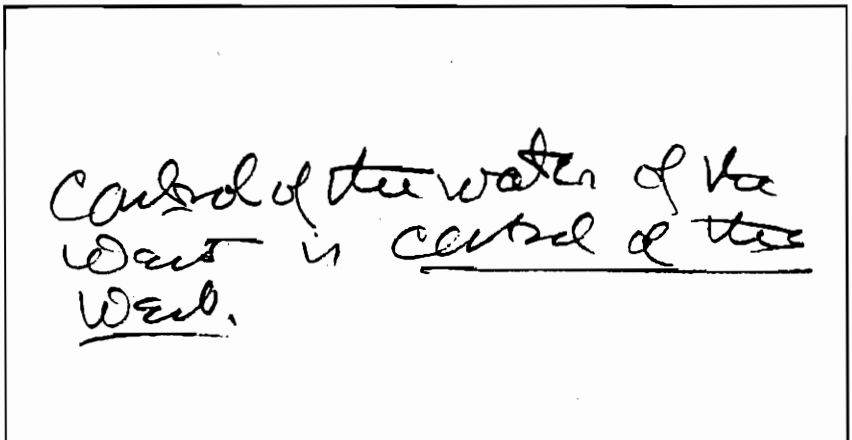 Control of the water of the
West is control of the
West.